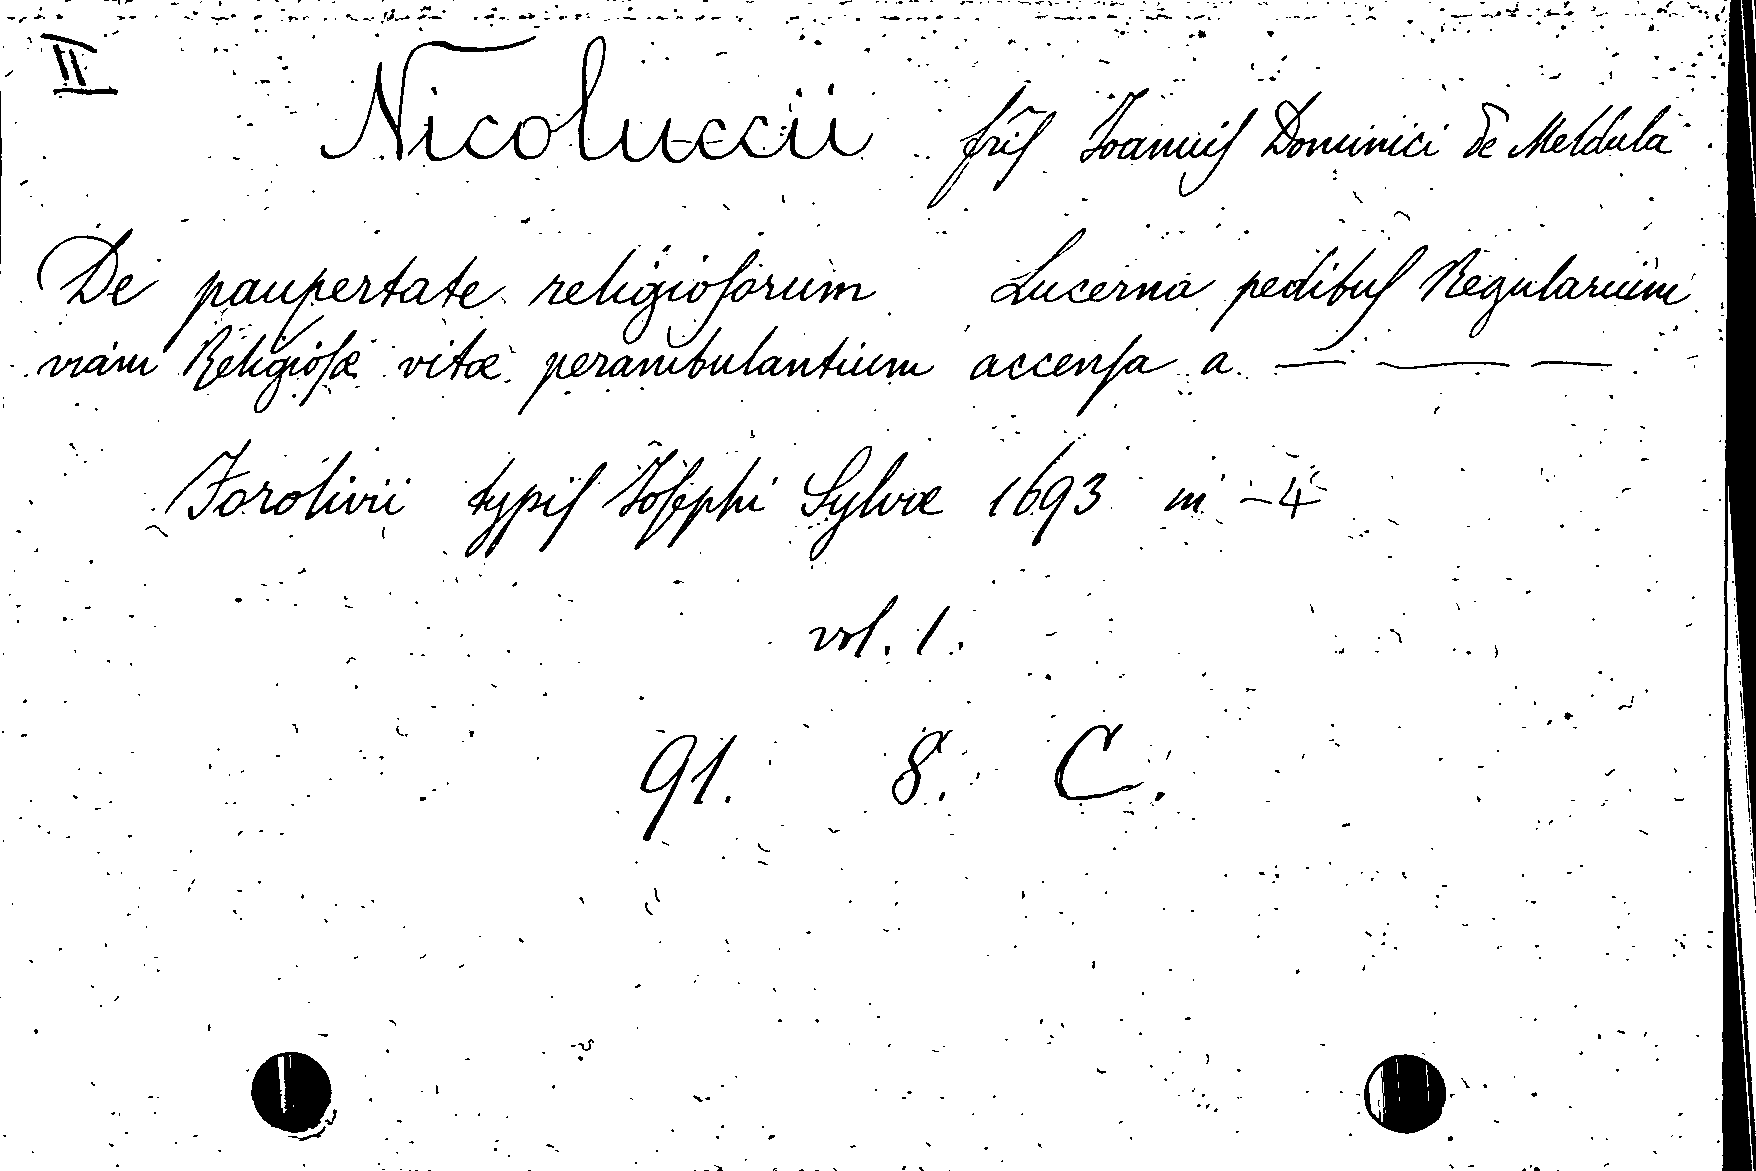 II
Nicoluccii fris Ioannis Dominici de Meldula
De paupertate religiosorum Lucerna pedibus Regularium
viam Religiosæ vitæ perambulantium accensa a — — —
Forolivii typis Iosephi Sylvæ 1693 in -4
vol. 1.
91. 8. C.